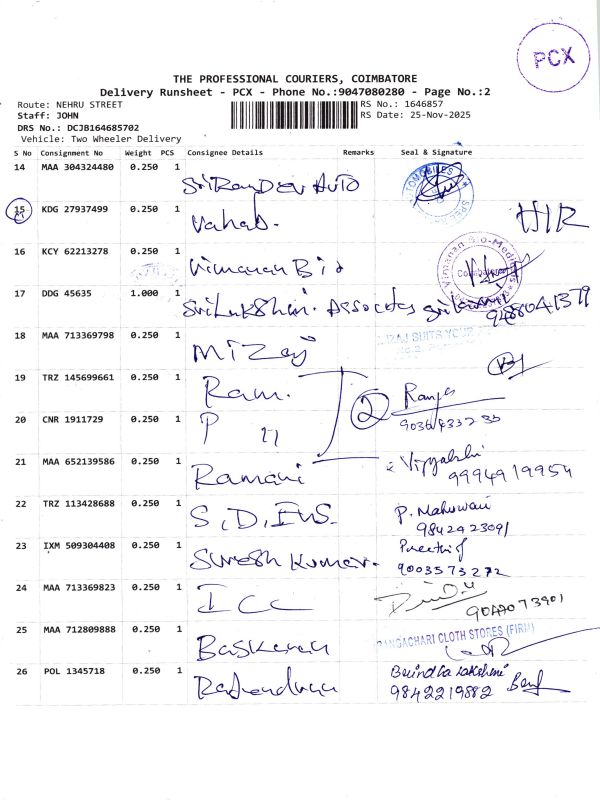 PCX
THE PROFESSIONAL COURIERS, COIMBATORE
Delivery Runsheet - PCX - Phone No.:9047080280 - Page No.:2
Route: NEHRU STREET
RS No.: 1646857
Staff: JOHN
RS Date: 25-Nov-2025
DRS No.: DCJB164685702
Vehicle: Two Wheeler Delivery
S No Consignment No Weight PCS Consignee Details Remarks Seal & Signature
14 MAA 304324480 0.250 1 Sri Ram DEV AUTO
15 KDG 27937499 0.250 1 Vahab.
16 KCY 62213278 0.250 1 Vimanan Bio
17 DDG 45635 1.000 1 Sri Lakshmi. Associates
18 MAA 713369798 0.250 1 Mizaj
19 TRZ 145699661 0.250 1 Ram. 2
20 CNR 1911729 0.250 1 P 11
21 MAA 652139586 0.250 1 Ramani 9994919954
22 TRZ 113428688 0.250 1 S.D. P. Maheswari
9842423091
23 IXM 509304408 0.250 1 Suresh Kumar. Preethi
9003573272
24 MAA 713369823 0.250 1 ICC
25 MAA 712809888 0.250 1 Baskaran RANGACHARI CLOTH STORES (FIRM)
26 POL 1345718 0.250 1 Rajendran
9842219882